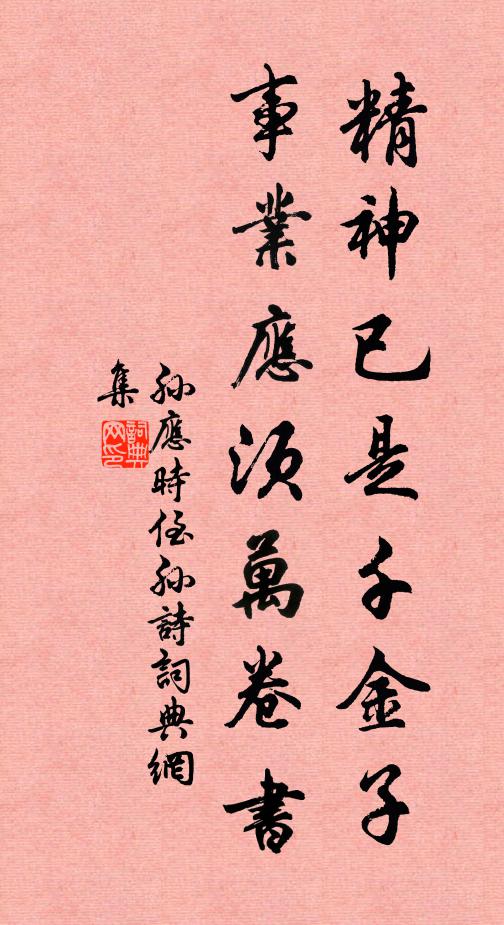 精神已是千金子
事業應須萬卷書
孫應時侄孫詩詞典網
集
詞典网印